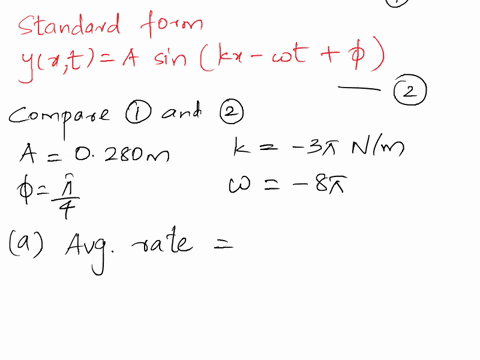 ①
Standard form
y(x,t) = A sin (kx - ωt + ϕ)
②
Compare ① and ②
A = 0.280m k = -3π N/m
ϕ = π/4 ω = -8π
(a) Avg. rate =